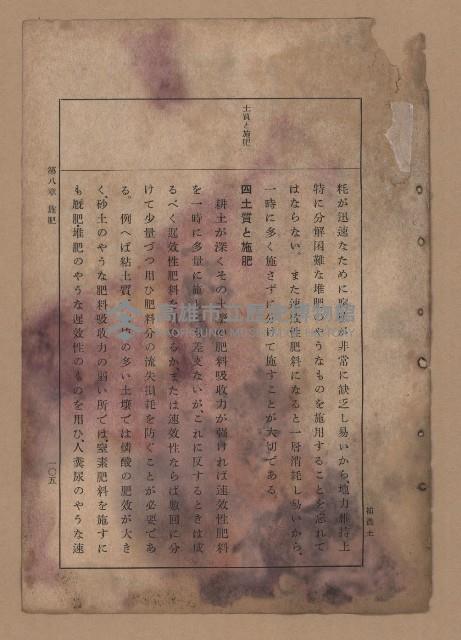 耗が迅速なために窒素が非常に缺乏し易いから地力維持上
特に分解困難な堆肥のやうなものを施用することを忘れて
はならない。また速效性肥料になると一層消耗し易いから、
一時に多く施さずに分けて施すことが大切である。
四土質と施肥
耕土が深くその土 肥料吸收力が强ければ速效性肥料
を一時に多量に施 差支ないが、これに反するときは成
るべく遲效性肥料を るかまたは速效性ならば數回に分
けて少量づつ用ひ肥料分の流失損耗を防ぐことが必要であ
る。例へば粘土質 の多い土壤では燐酸の肥效が大き
く、砂土のやうな肥料吸收力の弱い所では窒素肥料を施すに
も厩肥堆肥のやうな遲效性のものを用ひ人糞尿のやうな速
土質と施肥
第八章 施肥
一〇五
高雄市立歷史博物館
KAOHSIUNG MUSEUM OF HISTORY